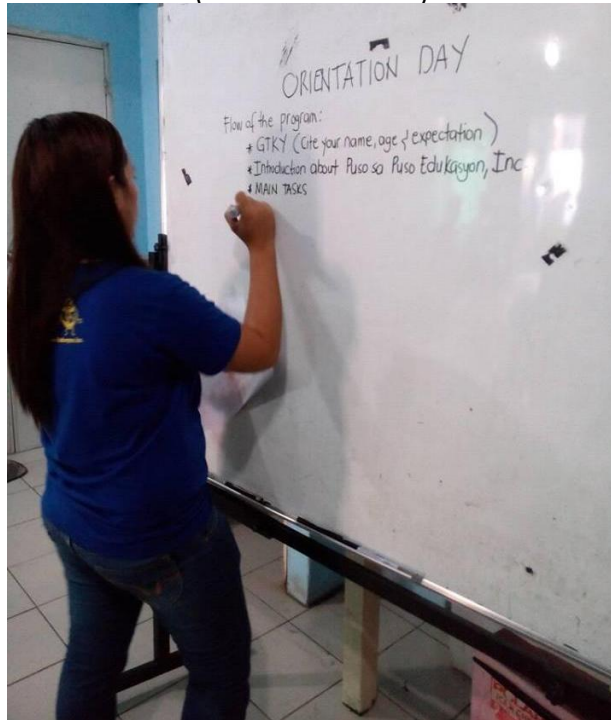 ORIENTATION DAY
Flow of the program:
* GTKY (Cite your name, age & expectation)
* Introduction about Puso sa Puso Edukasyon, Inc.
* MAIN TASKS